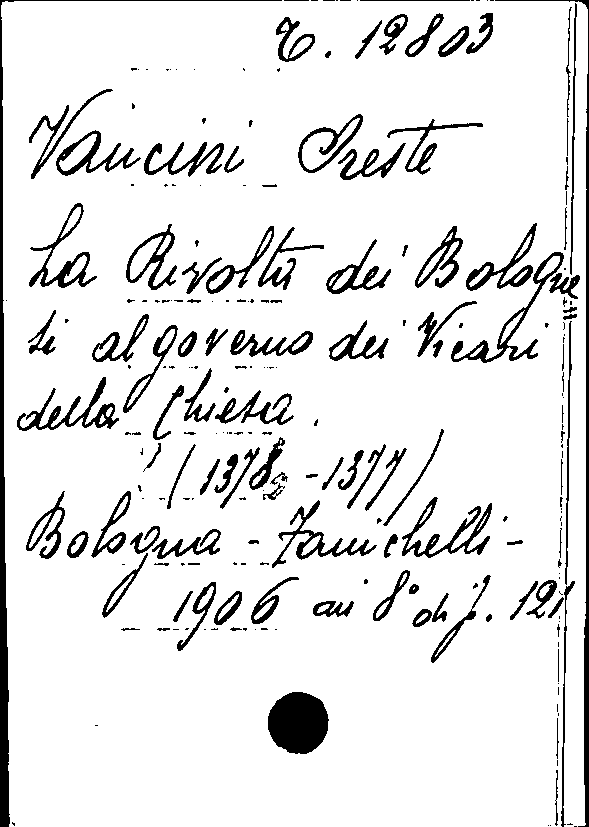 T. 12803
Vancini Oreste
La Rivolta dei Bologne=
si al governo dei Vicari
della Chiesa.
(1376 - 1377)
Bologna - Zanichelli -
1906 in 8° di p. 121